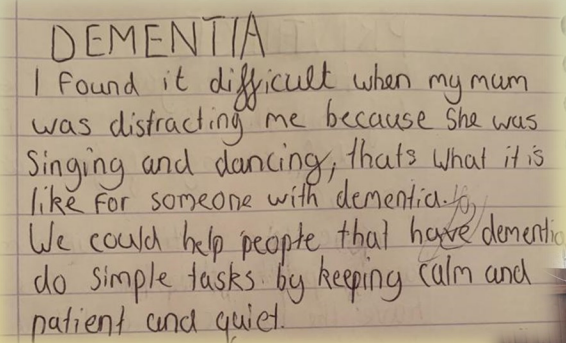 DEMENTIA
I found it difficult when my mum
was distracting me because she was
singing and dancing, thats what it is
like for someone with dementia.
We could help people that have dementia
do simple tasks by keeping calm and
patient and quiet.